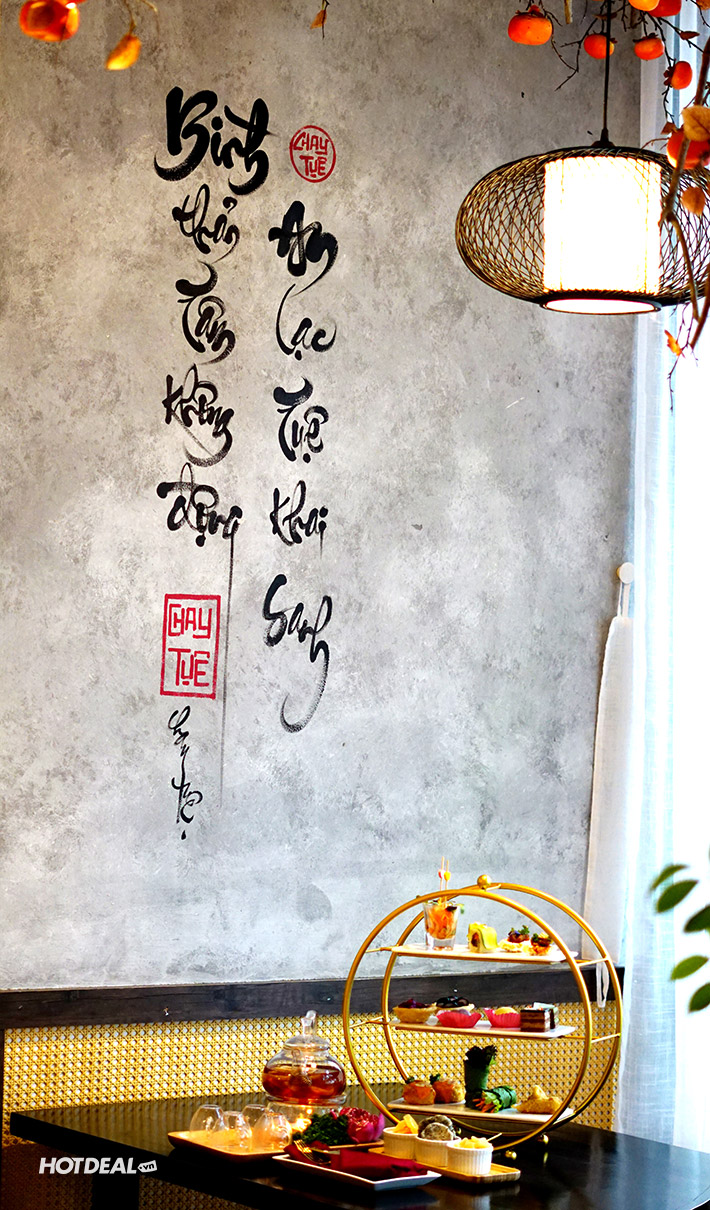 Bình
thản
Tâm
không
động
CHAY
TUỆ
An
lạc
Tuệ
khai
sanh
CHAY
TỤÊ
HOTDEAL.vn